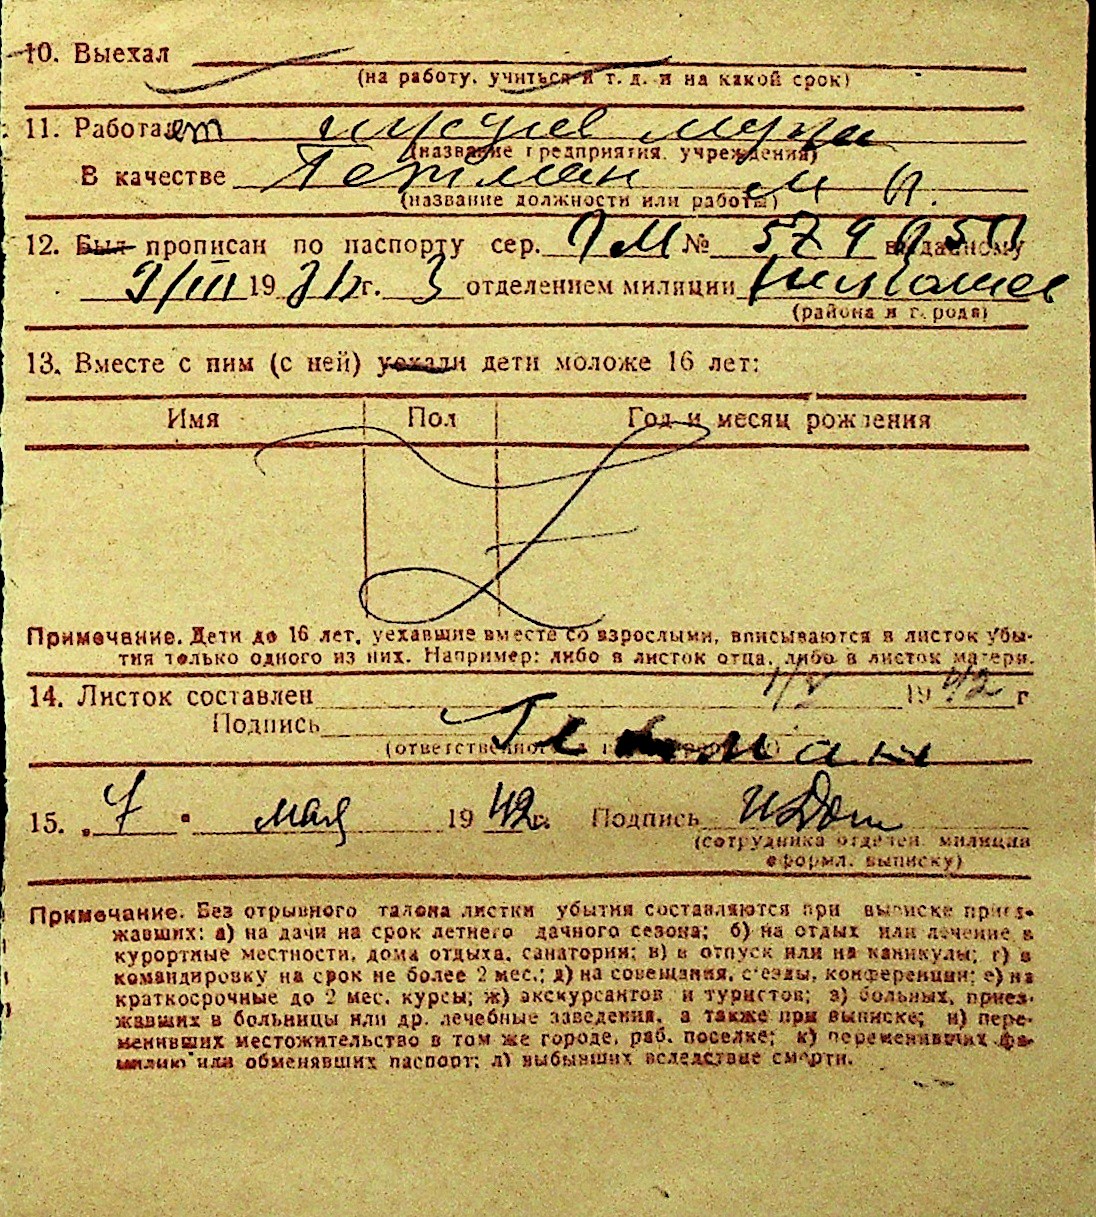 10. Выехал
(на работу, учиться и т. д. и на какой срок)
11. Работает
(название предприятия, учреждения)
В качестве Гетман
(название должности или работы)
12. Был прописан по паспорту сер. № выданному
9/III 19 г. 3 отделением милиции
(района и города)
13. Вместе с ним (с ней) уехали дети моложе 16 лет:
Имя Пол Год и месяц рождения
Примечание. Дети до 16 лет, уехавшие вместе со взрослыми, вписываются в листок убы-
тия только одного из них. Например: либо в листок отца, либо в листок матери.
14. Листок составлен 1/V 1942 г
Подпись
15. „7" мая 1942 г. Подпись
(сотрудника отделен. милиции
оформл. выписку)
Примечание. Без отрывного талона листки убытия составляются при выписке приез-
жавших: а) на дачи на срок летнего дачного сезона; б) на отдых или лечение в
курортные местности, дома отдыха, санатории; в) в отпуск или на каникулы; г) в
командировку на срок не более 2 мес.; д) на совещания, с'езды, конференции; е) на
краткосрочные до 2 мес. курсы; ж) экскурсантов и туристов; з) больных, приез-
жавших в больницы или др. лечебные заведения, а также при выписке; и) пере-
менивших местожительство в том же городе, раб. поселке; к) переменивших фа-
милию или обменявших паспорт; л) выбывших вследствие смерти.